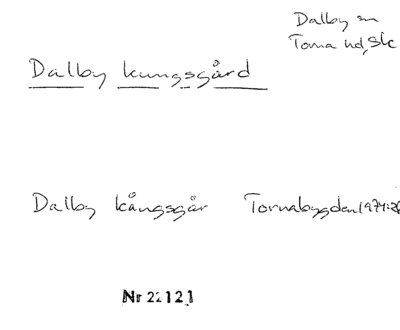 Dalby sn
Torna hd, Sk
Dalby kungsgård
Dalby kångsgår Tornabygden 1974:26
Nr 22121